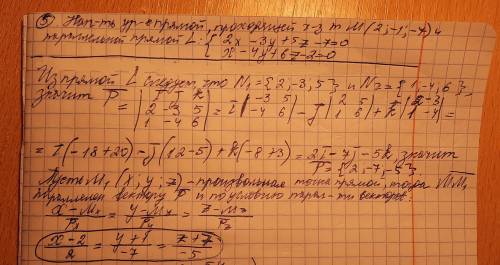 ⑤ Нап-ть ур-е прямой, проходящей ч-з т M(2; -1; -7) и
параллельной прямой L: { 2x - 3y + 5z - 7 = 0
x - 4y + 6z - 2 = 0
Из прямой L следует, что N₁ = {2, -3, 5} и N₂ = {1, -4, 6},
значит P̄ = | i j k; 2 -3 5; 1 -4 6 | = i | -3 5; -4 6 | - j | 2 5; 1 6 | + k | 2 -3; 1 -4 | =
= i(-18 + 20) - j(12 - 5) + k(-8 + 3) = 2i - 7j - 5k значит
P̄ = {2, -7, -5}.
Пусть M₁(x; y; z) - произвольная точка прямой, тогда MM₁
параллелен вектору P̄ и по условию парал-ти векторов:
(x - Mx)/P₁ = (y - My)/Py = (z - Mz)/P₂
(x - 2)/2 = (y + 1)/-7 = (z + 7)/-5